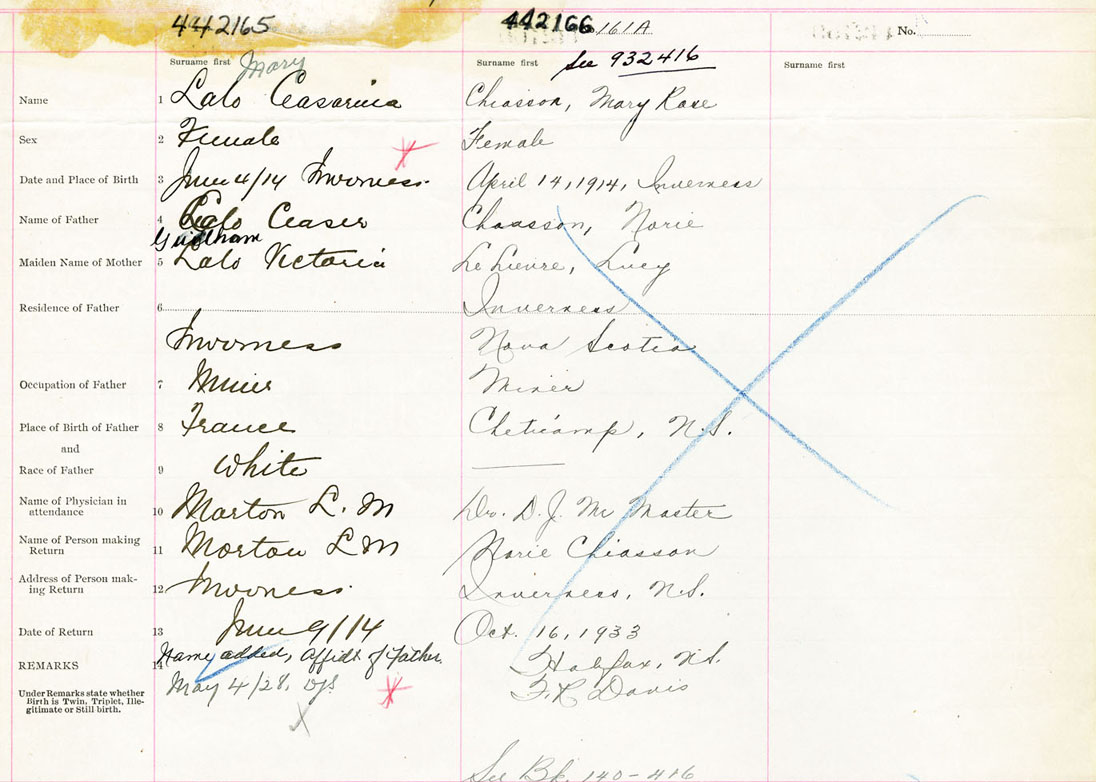 442165 442166 161A No.
See 932416
Surname first Mary Surname first Surname first
Name 1 Lalo Ceasarina Chiasson, Mary Rose
Sex 2 Female Female
Date and Place of Birth 3 June 4/14 Inverness. April 14, 1914, Inverness
Name of Father 4 Lalo Ceaser Chiasson, Norie
Maiden Name of Mother 5 Lalo Victoria LeLievre, Lucy
Residence of Father 6 Inverness
Inverness Nova Scotia
Occupation of Father 7 Miner Miner
Place of Birth of Father 8 France Cheticamp, N.S.
and
Race of Father 9 White
Name of Physician in
attendance 10 Morton L. M Dr. D.J. McMaster
Name of Person making
Return 11 Morton L M Norie Chiasson
Address of Person mak-
ing Return 12 Inverness. Inverness, N.S.
Date of Return 13 June 9/14 Oct. 16, 1933
REMARKS 14 Name added, Affidt of Father. Halifax, N.S.
May 4/28. F.R. Davis
Under Remarks state whether
Birth is Twin, Triplet, Ille-
gitimate or Still birth.
See Bk. 140-416